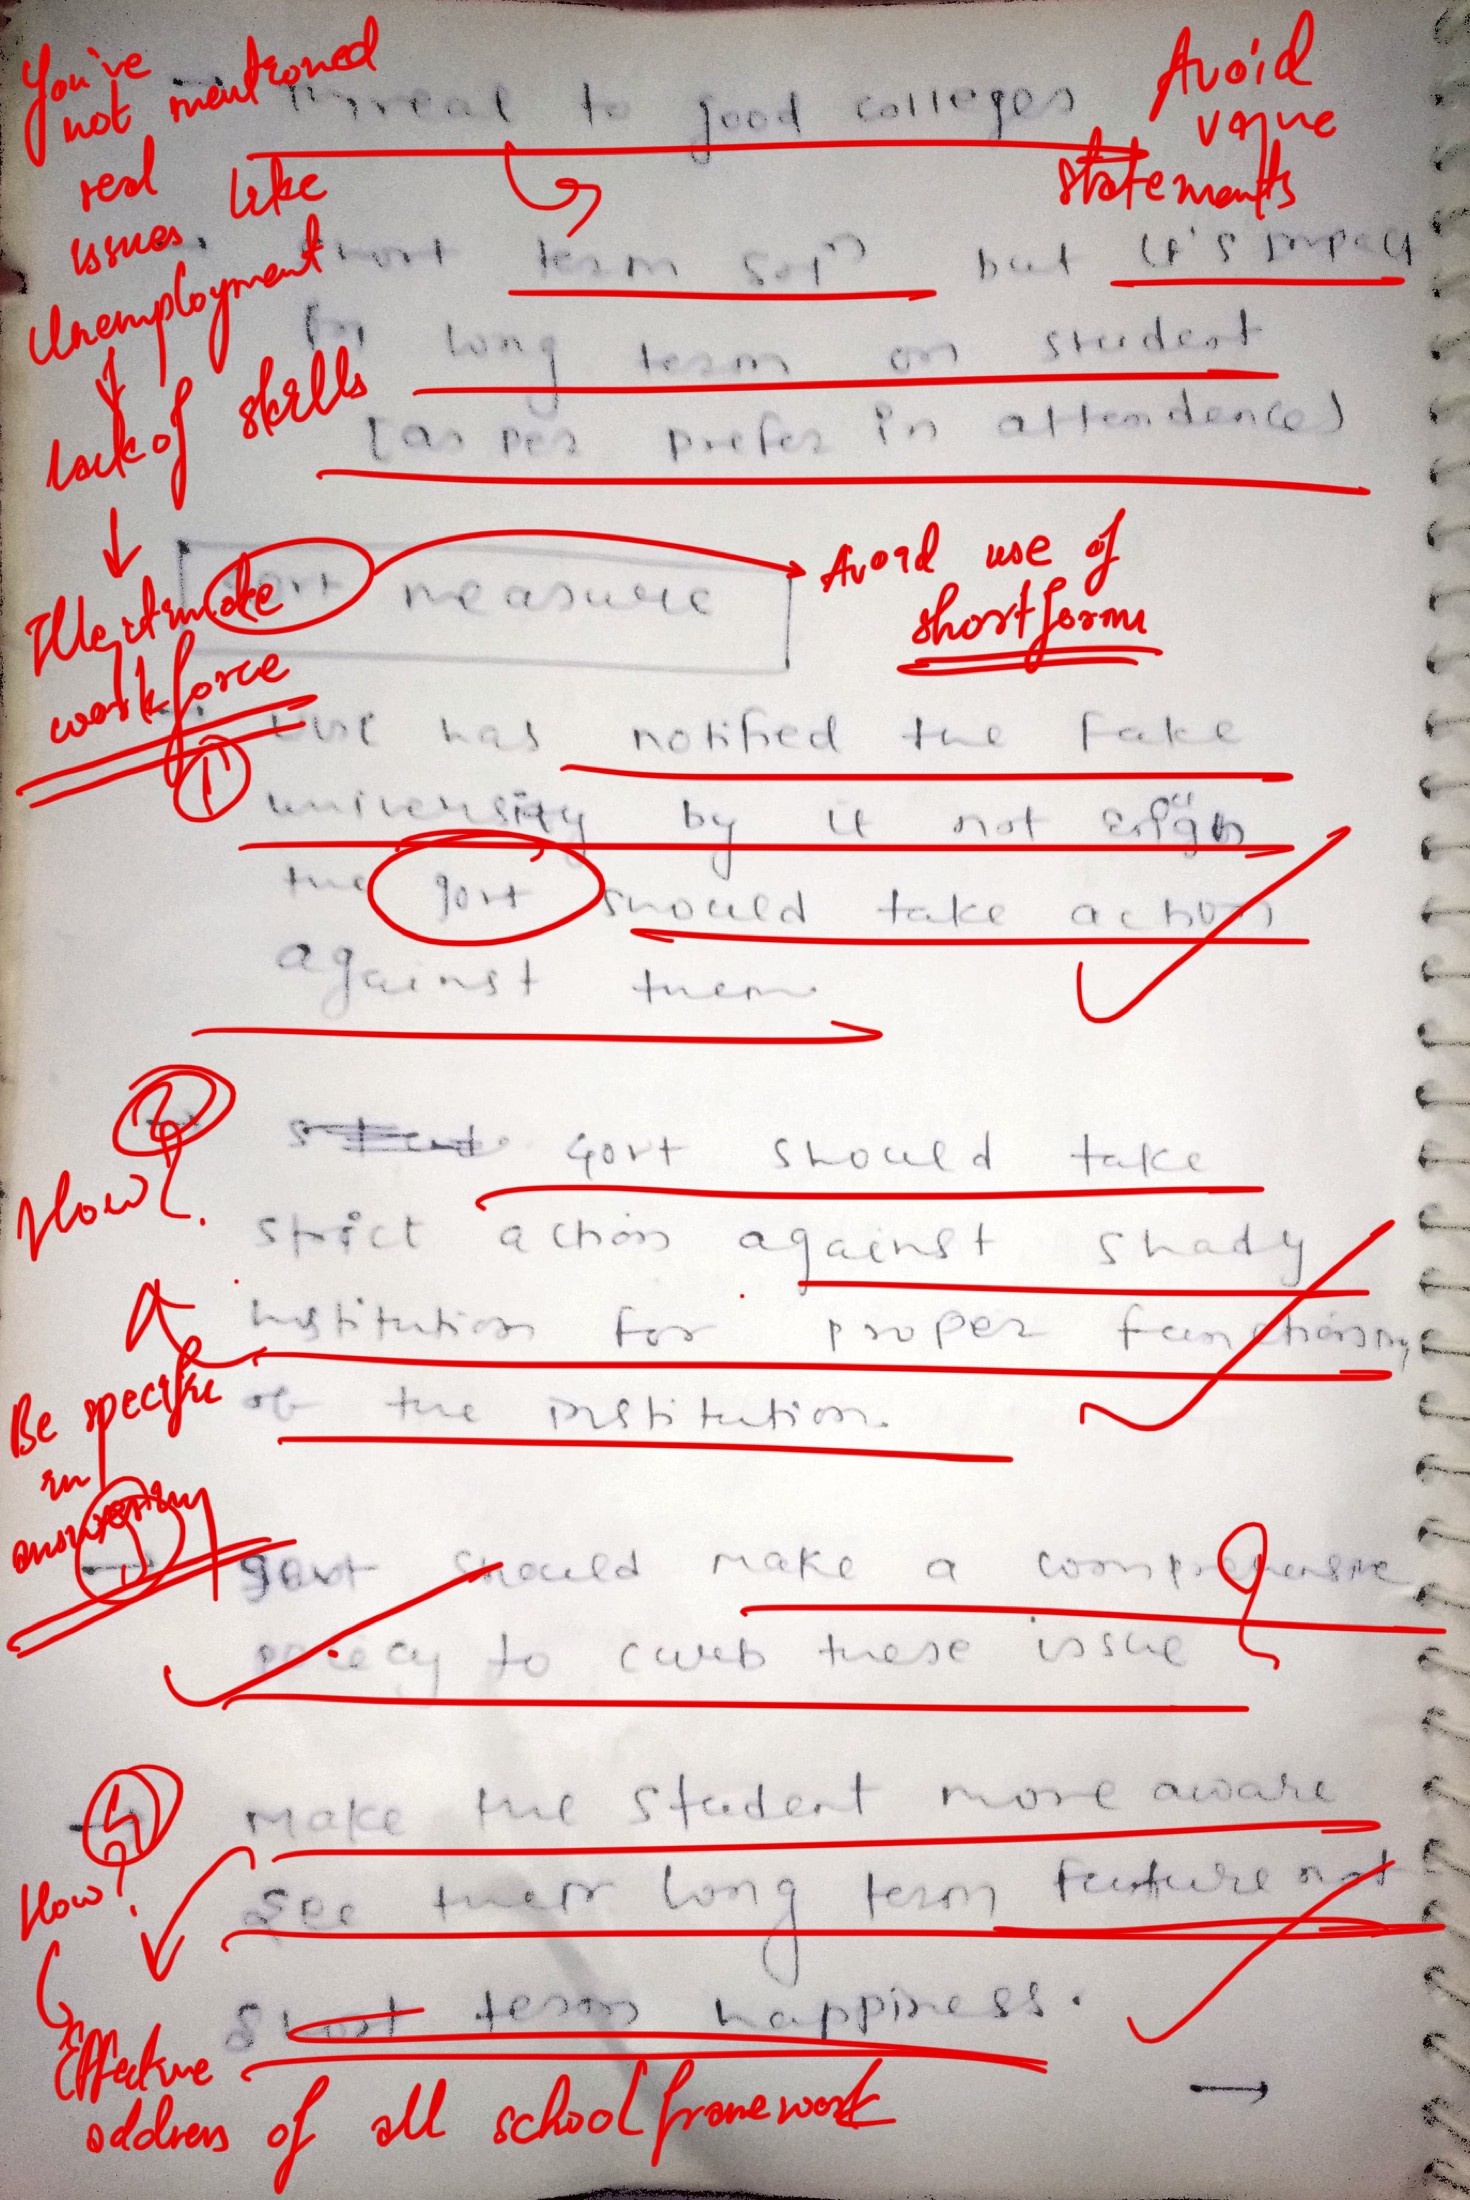 You've
not mentioned
real
issues like
Unemployment
lack of skills
Illegitimate
workforce
Avoid
vague
statements
to good colleges
short term sol^n but it's impact
in long term on student
(as per prefer in attendence)
Govt measure
Avoid use of
shortforms
1
has notified the fake
university by it not
the govt should take action
against them.
2
How?
Govt should take
strict action against shady
institution for proper functioning
of the institution.
Be specific
in
answering
govt should make a comprehensive
policy to curb these issue
4
How?
Make the student more aware
see their long term future not
short term happiness.
Effective
address of all school framework